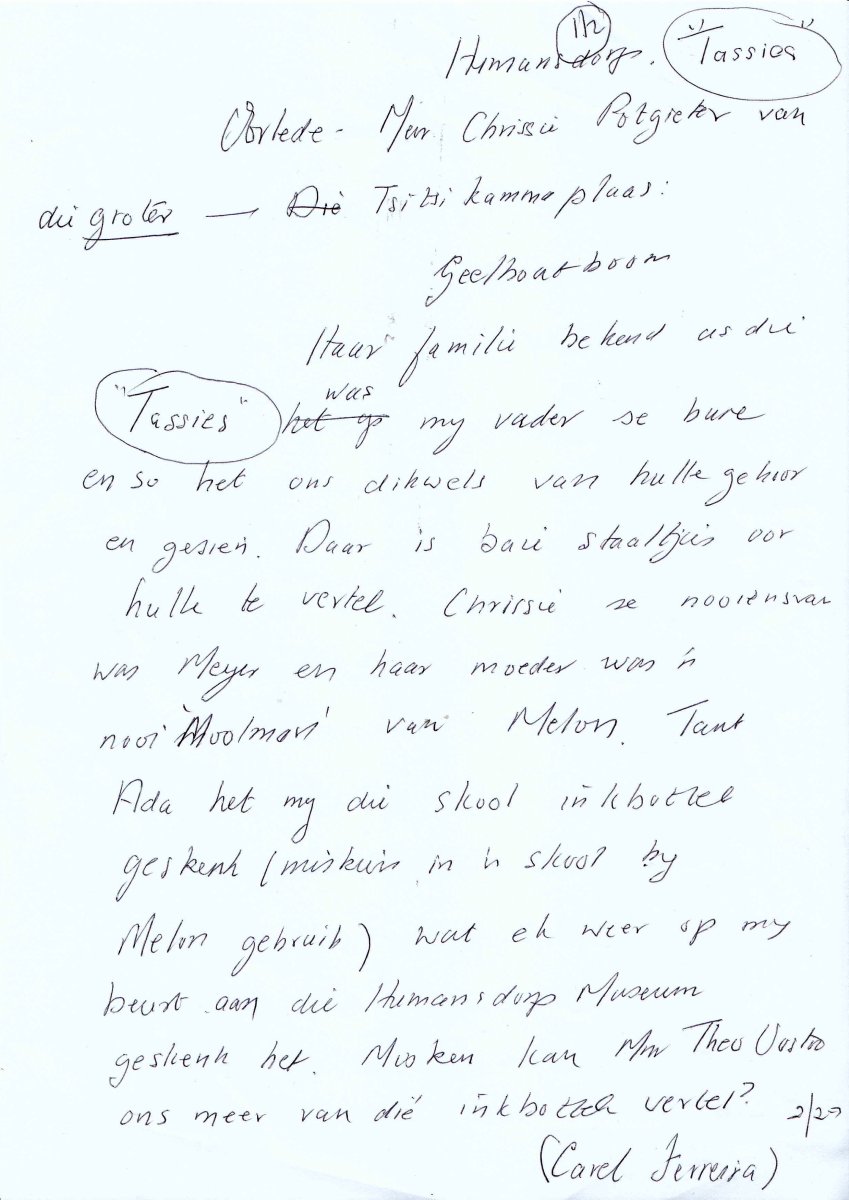 Humansdorp. "Tassies"
Oorlede - Mev Chrissie Potgieter van
die groter — Die Tsitsikamma plaas:
Geelhoutboom
Haar familie bekend as die
"Tassies" het op was my vader se bure
en so het ons dikwels van hulle gehoor
en gesien. Daar is baie staaltjies oor
hulle te vertel. Chrissie se nooiensvan
was Meyer en haar moeder was 'n
nooi 'Moolman' van Melon. Tant
Ada het my die skool inkbottel
geskenk (miskien in 'n skool by
Melon gebruik) wat ek weer op my
beurt aan die Humansdorp Museum
geskenk het. Miskien kan Mnr Theo
ons meer van dié inkbottel vertel?
(Carel Ferreira)